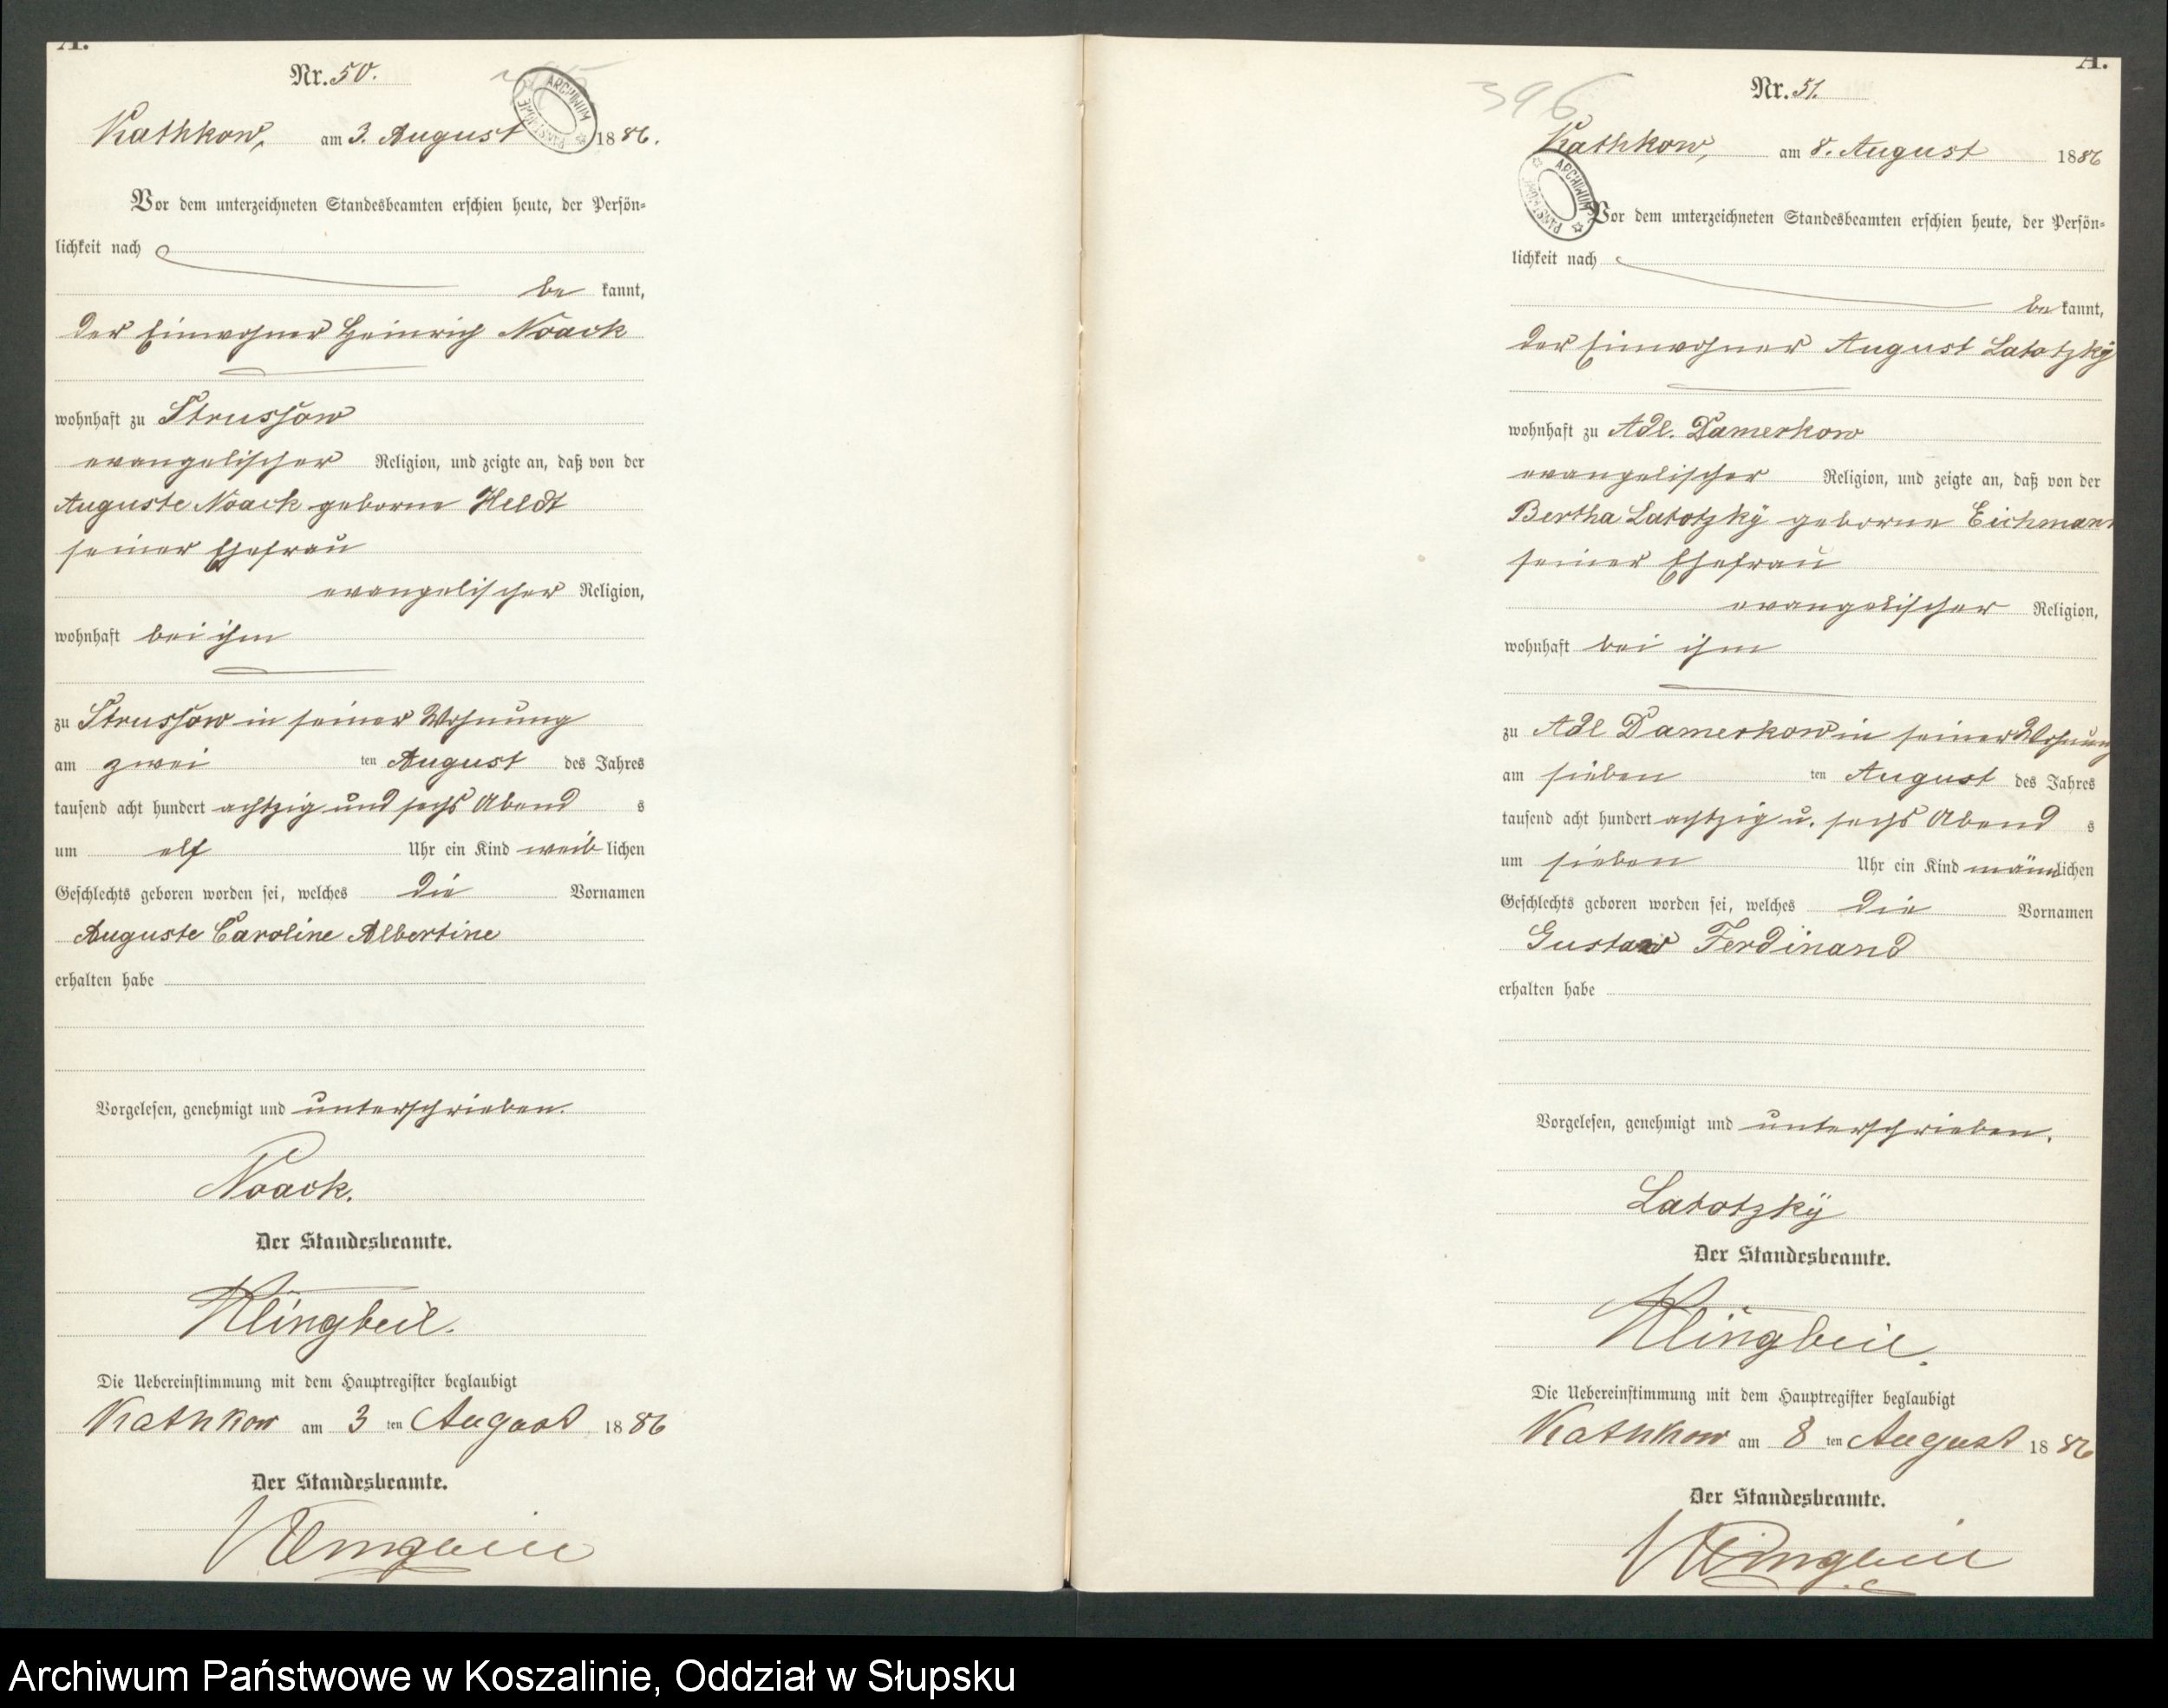 A.
Nr. 50.
Kathkow, am 3. August 1886.
Vor dem unterzeichneten Standesbeamten erschien heute, der Persön-
lichkeit nach
be kannt,
der Einwohner Heinrich Noack
wohnhaft zu Strussow
evangelischer Religion, und zeigte an, daß von der
Auguste Noack geborne Heldt
seiner Ehefrau
evangelischer Religion,
wohnhaft bei ihm
zu Strussow in seiner Wohnung
am zwei ten August des Jahres
tausend acht hundert achtzig und sechs Abend s
um elf Uhr ein Kind weib lichen
Geschlechts geboren worden sei, welches die Vornamen
Auguste Caroline Albertine
erhalten habe
Vorgelesen, genehmigt und unterschrieben.
Noack.
Der Standesbeamte.
Klingbeil.
Die Uebereinstimmung mit dem Hauptregister beglaubigt
Kathkow am 3 ten August 1886
Der Standesbeamte.
Klingbeil
A.
Nr. 51.
396
Kathkow, am 8. August 1886
ARCHIWUM PAŃSTWOWE
Vor dem unterzeichneten Standesbeamten erschien heute, der Persön-
lichkeit nach
be kannt,
der Einwohner August Latotzkÿ
wohnhaft zu Adl. Damerkow
evangelischer Religion, und zeigte an, daß von der
Bertha Latotzkÿ geborne Eichmann
seiner Ehefrau
evangelischer Religion,
wohnhaft bei ihm
zu Adl Damerkow in seiner Wohnung
am sieben ten August des Jahres
tausend acht hundert achtzig u. sechs Abend s
um sieben Uhr ein Kind männlichen
Geschlechts geboren worden sei, welches die Vornamen
Gustav Ferdinand
erhalten habe
Vorgelesen, genehmigt und unterschrieben.
Latotzkÿ
Der Standesbeamte.
Klingbeil.
Die Uebereinstimmung mit dem Hauptregister beglaubigt
Kathkow am 8 ten August 1886
Der Standesbeamte.
Klingbeil
Archiwum Państwowe w Koszalinie, Oddział w Słupsku